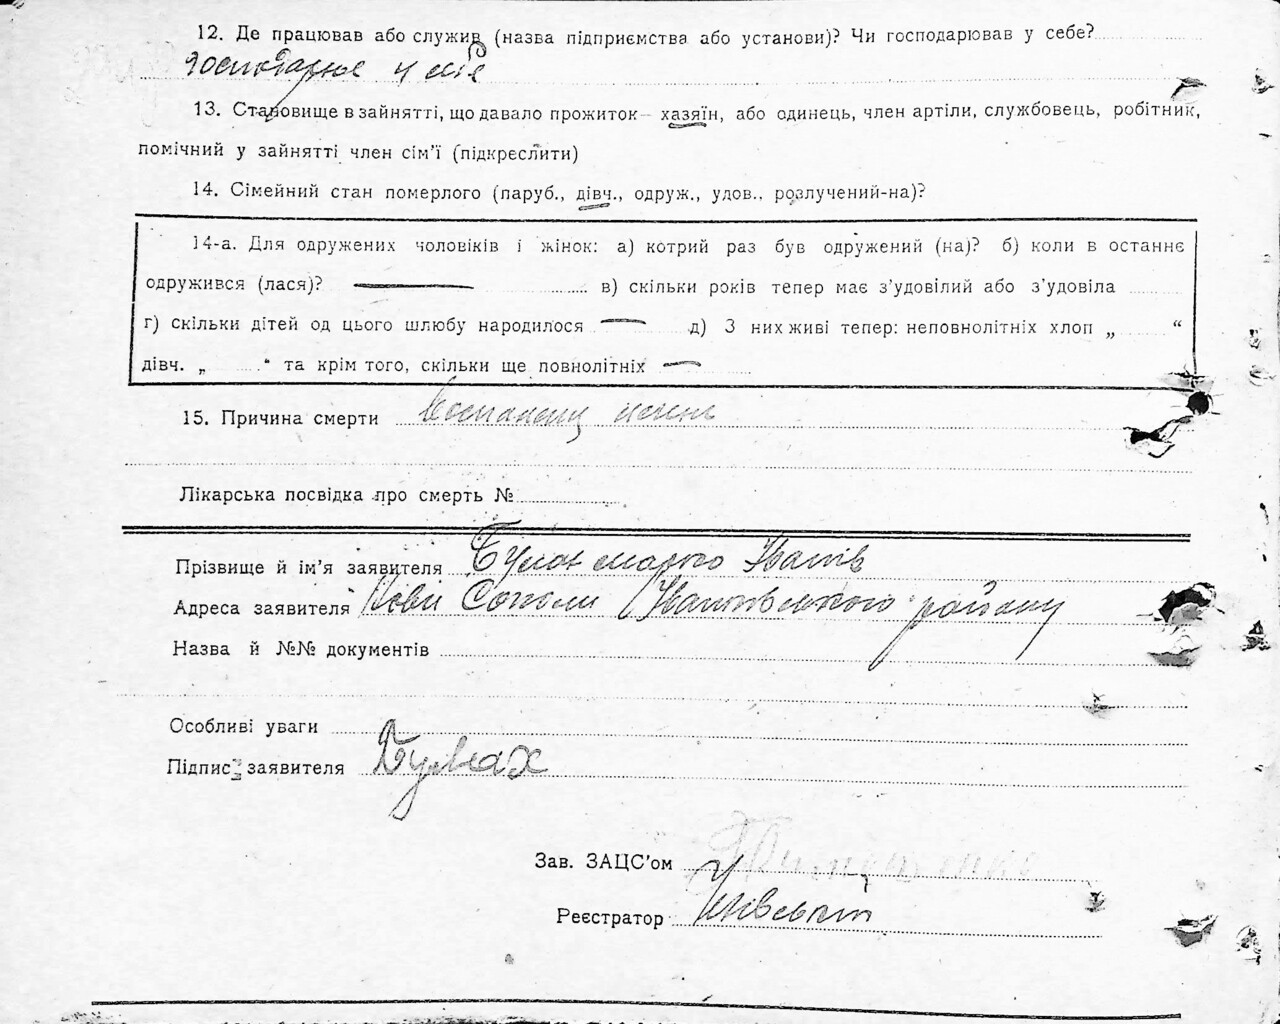 12. Де працював або служив (назва підприємства або установи)? Чи господарював у себе?
господарює у себе
13. Становище в зайнятті, що давало прожиток— хазяїн, або одинець, член артіли, службовець, робітник,
помічний у зайнятті член сім'ї (підкреслити)
14. Сімейний стан померлого (паруб., дівч., одруж., удов., розлучений-на)?
14-а. Для одружених чоловіків і жінок: а) котрий раз був одружений (на)? б) коли в останнє
одружився (лася)? — в) скільки років тепер має з'удовілий або з'удовіла
г) скільки дітей од цього шлюбу народилося — д) З них живі тепер: неповнолітніх хлоп „ “
дівч. „ “ та крім того, скільки ще повнолітніх —
15. Причина смерти
Лікарська посвідка про смерть №
Прізвище й ім'я заявителя Марко Іванів
Адреса заявителя Нові Соколи Іванківського району
Назва й №№ документів
Особливі уваги
Підпис заявителя
Зав. ЗАЦС'ом
Реєстратор